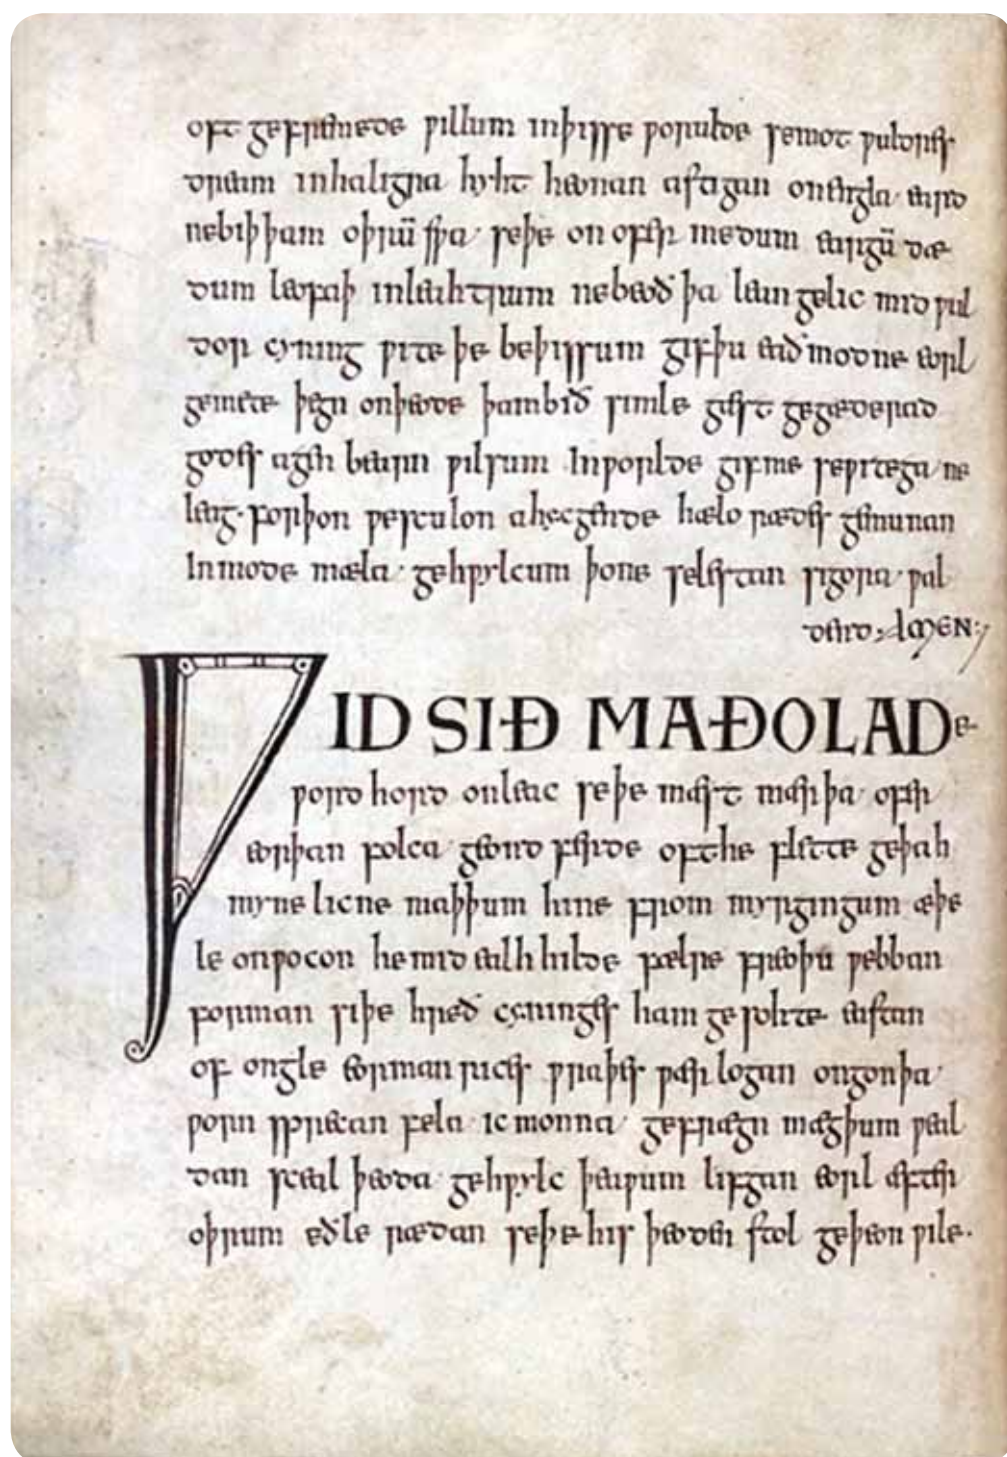 oft gefremede ƿillum in þisse ƿorulde se mot ƿuldres
dream in haligra hyht heonan astigan on engla eard
ne biþ þam oþrū sƿa se þe on ofer medum eargū dæ
dum leofaþ in leahtrum ne beoð þa lean gelic mid ƿul
dor cyning ƿite þe be þissum gif þu eað modne eorl
gemete þegn on þeode þam bið simle gæst gegæderad
godes agen bearn ƿilsum In ƿorlde gif me se ƿitega ne
leag. forþon ƿe sculon a hycgende hælo rædes gemunan
In mode mæla gehƿylcum þone selestan sigora ƿal
dend, AMEN:
ǷIDSIÐ MAÐOLADe
ƿord hord onleac se þe mæst mærþa ofer
eorþan folca geond ferde oft he flette geþah
myne licne maþþum hine from myrgingum æþe
le onƿocon he mid ealhhilde fælre freoþū ƿebban
forman siþe hreð cyninges ham gesohte eastan
of ongle eorman rices ƿraþes ƿær logan ongon þa
ƿorn sprecan fela ic monna gefrægn mægþum ƿeal
dan sceal þeoda gehƿylc þeaƿum lifgan eorl æfter
oþrum eðle rædan se þe his þeoden stol geþeon ƿile.